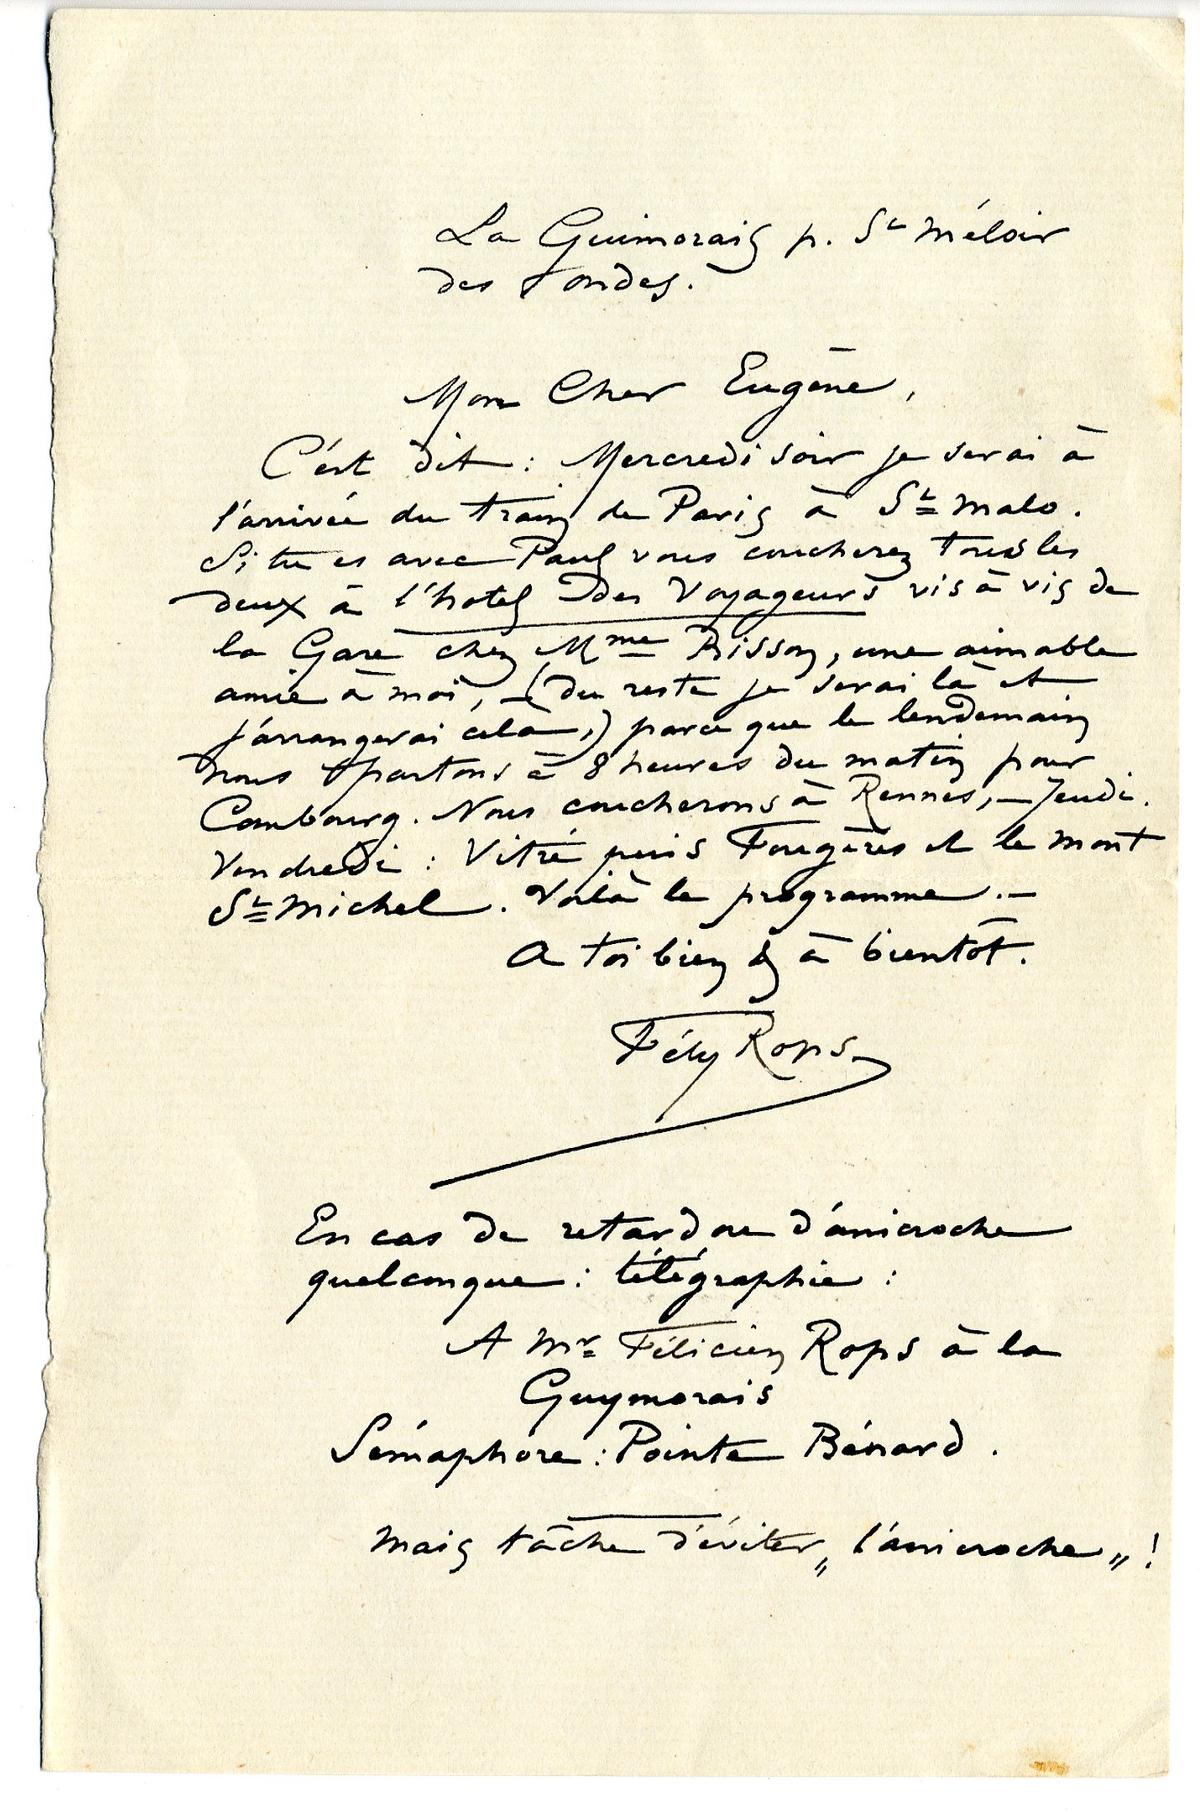 La Guimorais p. St Méloir
des Ondes.
Mon Cher Eugène,
C'est dit : Mercredi soir je serai à
l'arrivée du train de Paris à St Malo.
Si tu es avec Paul vous coucherez tous les
deux à l'hotel Des Voyageurs vis à vis de
la Gare chez Mme Bisson, une aimable
amie à moi, – (du reste je serai là et
j'arrangerai cela,) parce que le lendemain
nous partons à 8 heures du matin pour
Combourg. Nous coucherons à Rennes, – Jeudi.
Vendredi : Vitré puis Fougères et le mont
St Michel. Voilà le programme. –
A toi bien & à bientôt.
Fély Rops
En cas de retard ou d'anicroche
quelconque : télégraphie :
A Mr Félicien Rops à la
Guymorais
Sémaphore : Pointe Bénard.
Mais tâche d'éviter „l'anicroche„ !